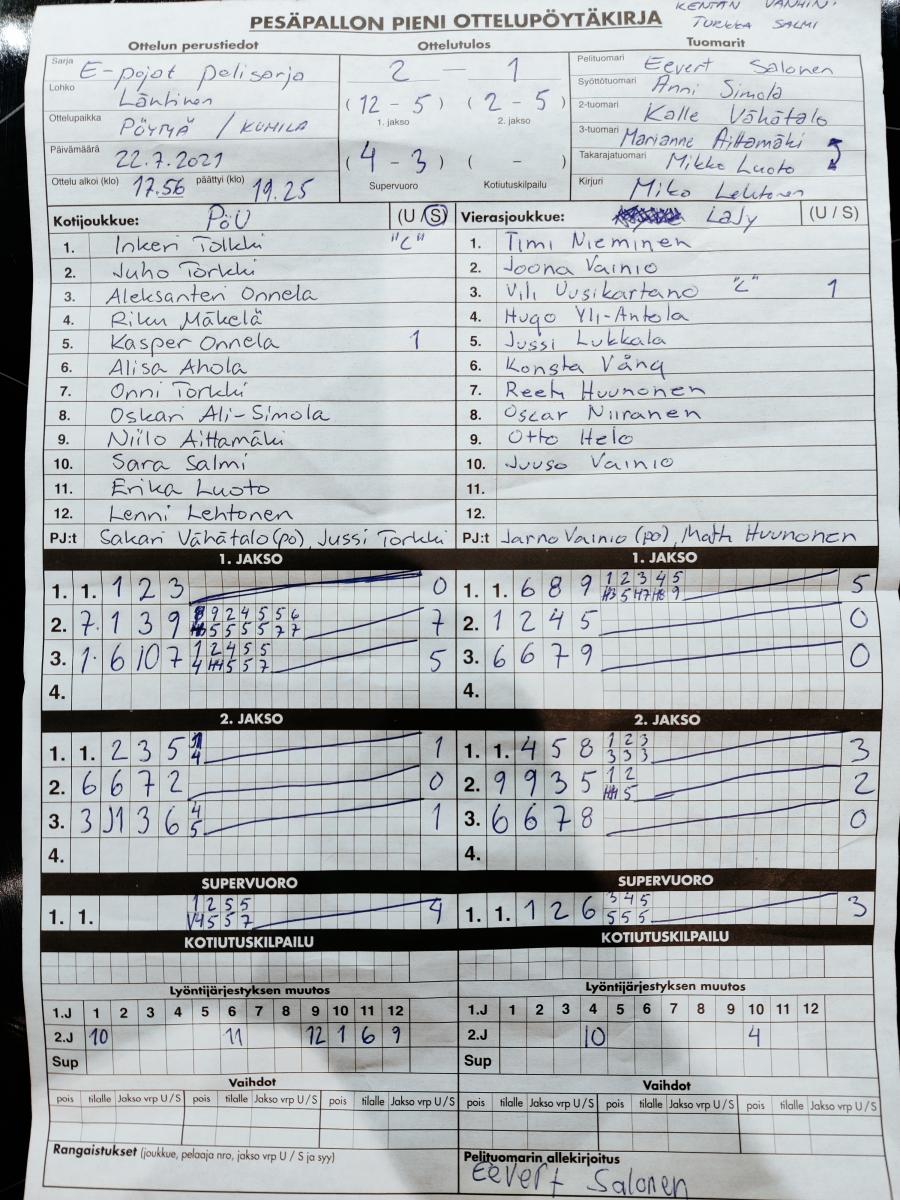 KENTÄN VANHIN:
TURKKA SALMI
PESÄPALLON PIENI OTTELUPÖYTÄKIRJA
Ottelun perustiedot Ottelutulos Tuomarit
Sarja E-pojat pelisarja
Lohko Läntinen
Ottelupaikka PÖYTYÄ / KUMILA
Päivämäärä 22.7.2021
Ottelu alkoi (klo) 17.56 päättyi (klo) 19.25
2 - 1
(12 - 5) (2 - 5)
1. jakso 2. jakso
(4 - 3) ( - )
Supervuoro Kotiutuskilpailu
Pelituomari Eevert Salonen
Syöttötuomari Anni Simola
2-tuomari Kalle Vähätalo
3-tuomari Marianne Aittamäki
Takarajatuomari Mikko Luoto
Kirjuri Miko Lehtonen
Kotijoukkue: PöU (U / S)
1. Inkeri Tolkki "C"
2. Juho Torkki
3. Aleksanteri Onnela
4. Riku Mäkelä
5. Kasper Onnela 1
6. Alisa Ahola
7. Onni Torkki
8. Oskari Ali-Simola
9. Niilo Aittamäki
10. Sara Salmi
11. Erika Luoto
12. Lenni Lehtonen
PJ:t Sakari Vähätalo (po), Jussi Torkki
Vierasjoukkue: LaJy (U / S)
1. Timi Nieminen
2. Joona Vainio
3. Vili Uusikartano "C" 1
4. Hugo Yli-Antola
5. Jussi Lukkala
6. Konsta Vång
7. Reeti Huunonen
8. Oscar Niiranen
9. Otto Helo
10. Juuso Vainio
11.
12.
PJ:t Jarno Vainio (po), Matti Huunonen
1. JAKSO
1. 1. 1 2 3 0
2. 7. 1 3 9 9 2 4 5 5 6 7
5 5 5 5 7 7
3. 1. 6 10 7 1 2 4 5 5 5
4 5 5 7
4.
1. JAKSO
1. 1. 6 8 9 1 2 3 4 5 5
5 9
2. 1 2 4 5 0
3. 6 6 7 9 0
4.
2. JAKSO
1. 1. 2 3 5 4 1
2. 6 6 7 2 0
3. 3 1 3 6 4 1
5
4.
2. JAKSO
1. 1. 4 5 8 1 2 3 3
3 3 3
2. 9 9 3 5 1 2 2
5
3. 6 6 7 8 0
4.
SUPERVUORO
1. 1. 1 2 5 5 4
5 5 7
SUPERVUORO
1. 1. 1 2 6 3 4 5 3
5 5 5
KOTIUTUSKILPAILU
KOTIUTUSKILPAILU
Lyöntijärjestyksen muutos
1.J 1 2 3 4 5 6 7 8 9 10 11 12
2.J 10 11 12 1 6 9
Sup
Lyöntijärjestyksen muutos
1.J 1 2 3 4 5 6 7 8 9 10 11 12
2.J 10 4
Sup
Vaihdot
pois tilalle Jakso vrp U / S pois tilalle Jakso vrp U / S pois tilalle Jakso vrp U / S
Vaihdot
pois tilalle Jakso vrp U / S pois tilalle Jakso vrp U / S pois tilalle Jakso vrp U / S
Rangaistukset (joukkue, pelaaja nro, jakso vrp U / S ja syy)
Pelituomarin allekirjoitus
Eevert Salonen